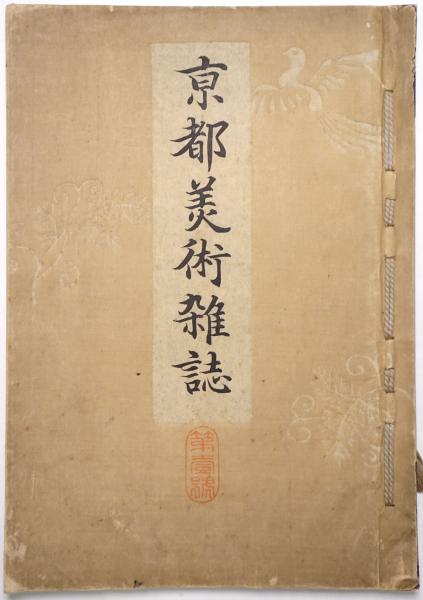 京都美術雑誌
第壹號